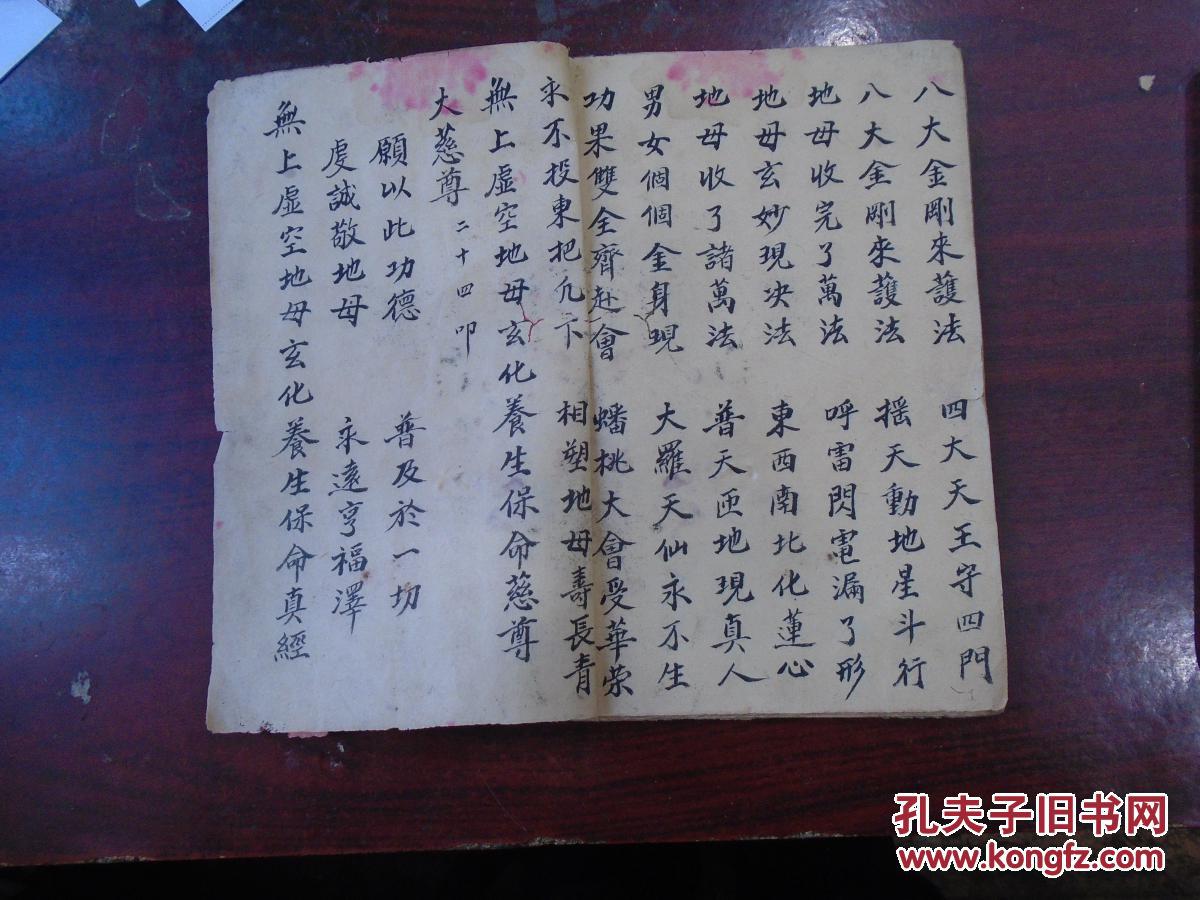 八大金剛來護法 四大天王守四門
八大金剛來護法 摇天動地星斗行
地母收完了萬法 呼雷閃電漏了形
地母玄妙現决法 東西南北化蓮心
地母收了諸萬法 普天匝地現真人
男女個個金身現 大羅天仙永不生
功果雙全齊赴會 蟠桃大會受華荣
永不投東把凢下 相塑地母壽長青
無上虛空地母玄化養生保命慈尊
大慈尊 二十四叩
願以此功德 普及於一切
虔誠敬地母 永遠亨福澤
無上虛空地母玄化養生保命真經
孔夫子旧书网
www.kongfz.com